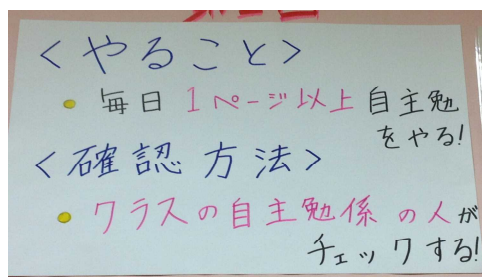 <やること>
毎日1ページ以上自主勉
をやる!
<確認方法>
クラスの自主勉係の人が
チェックする!